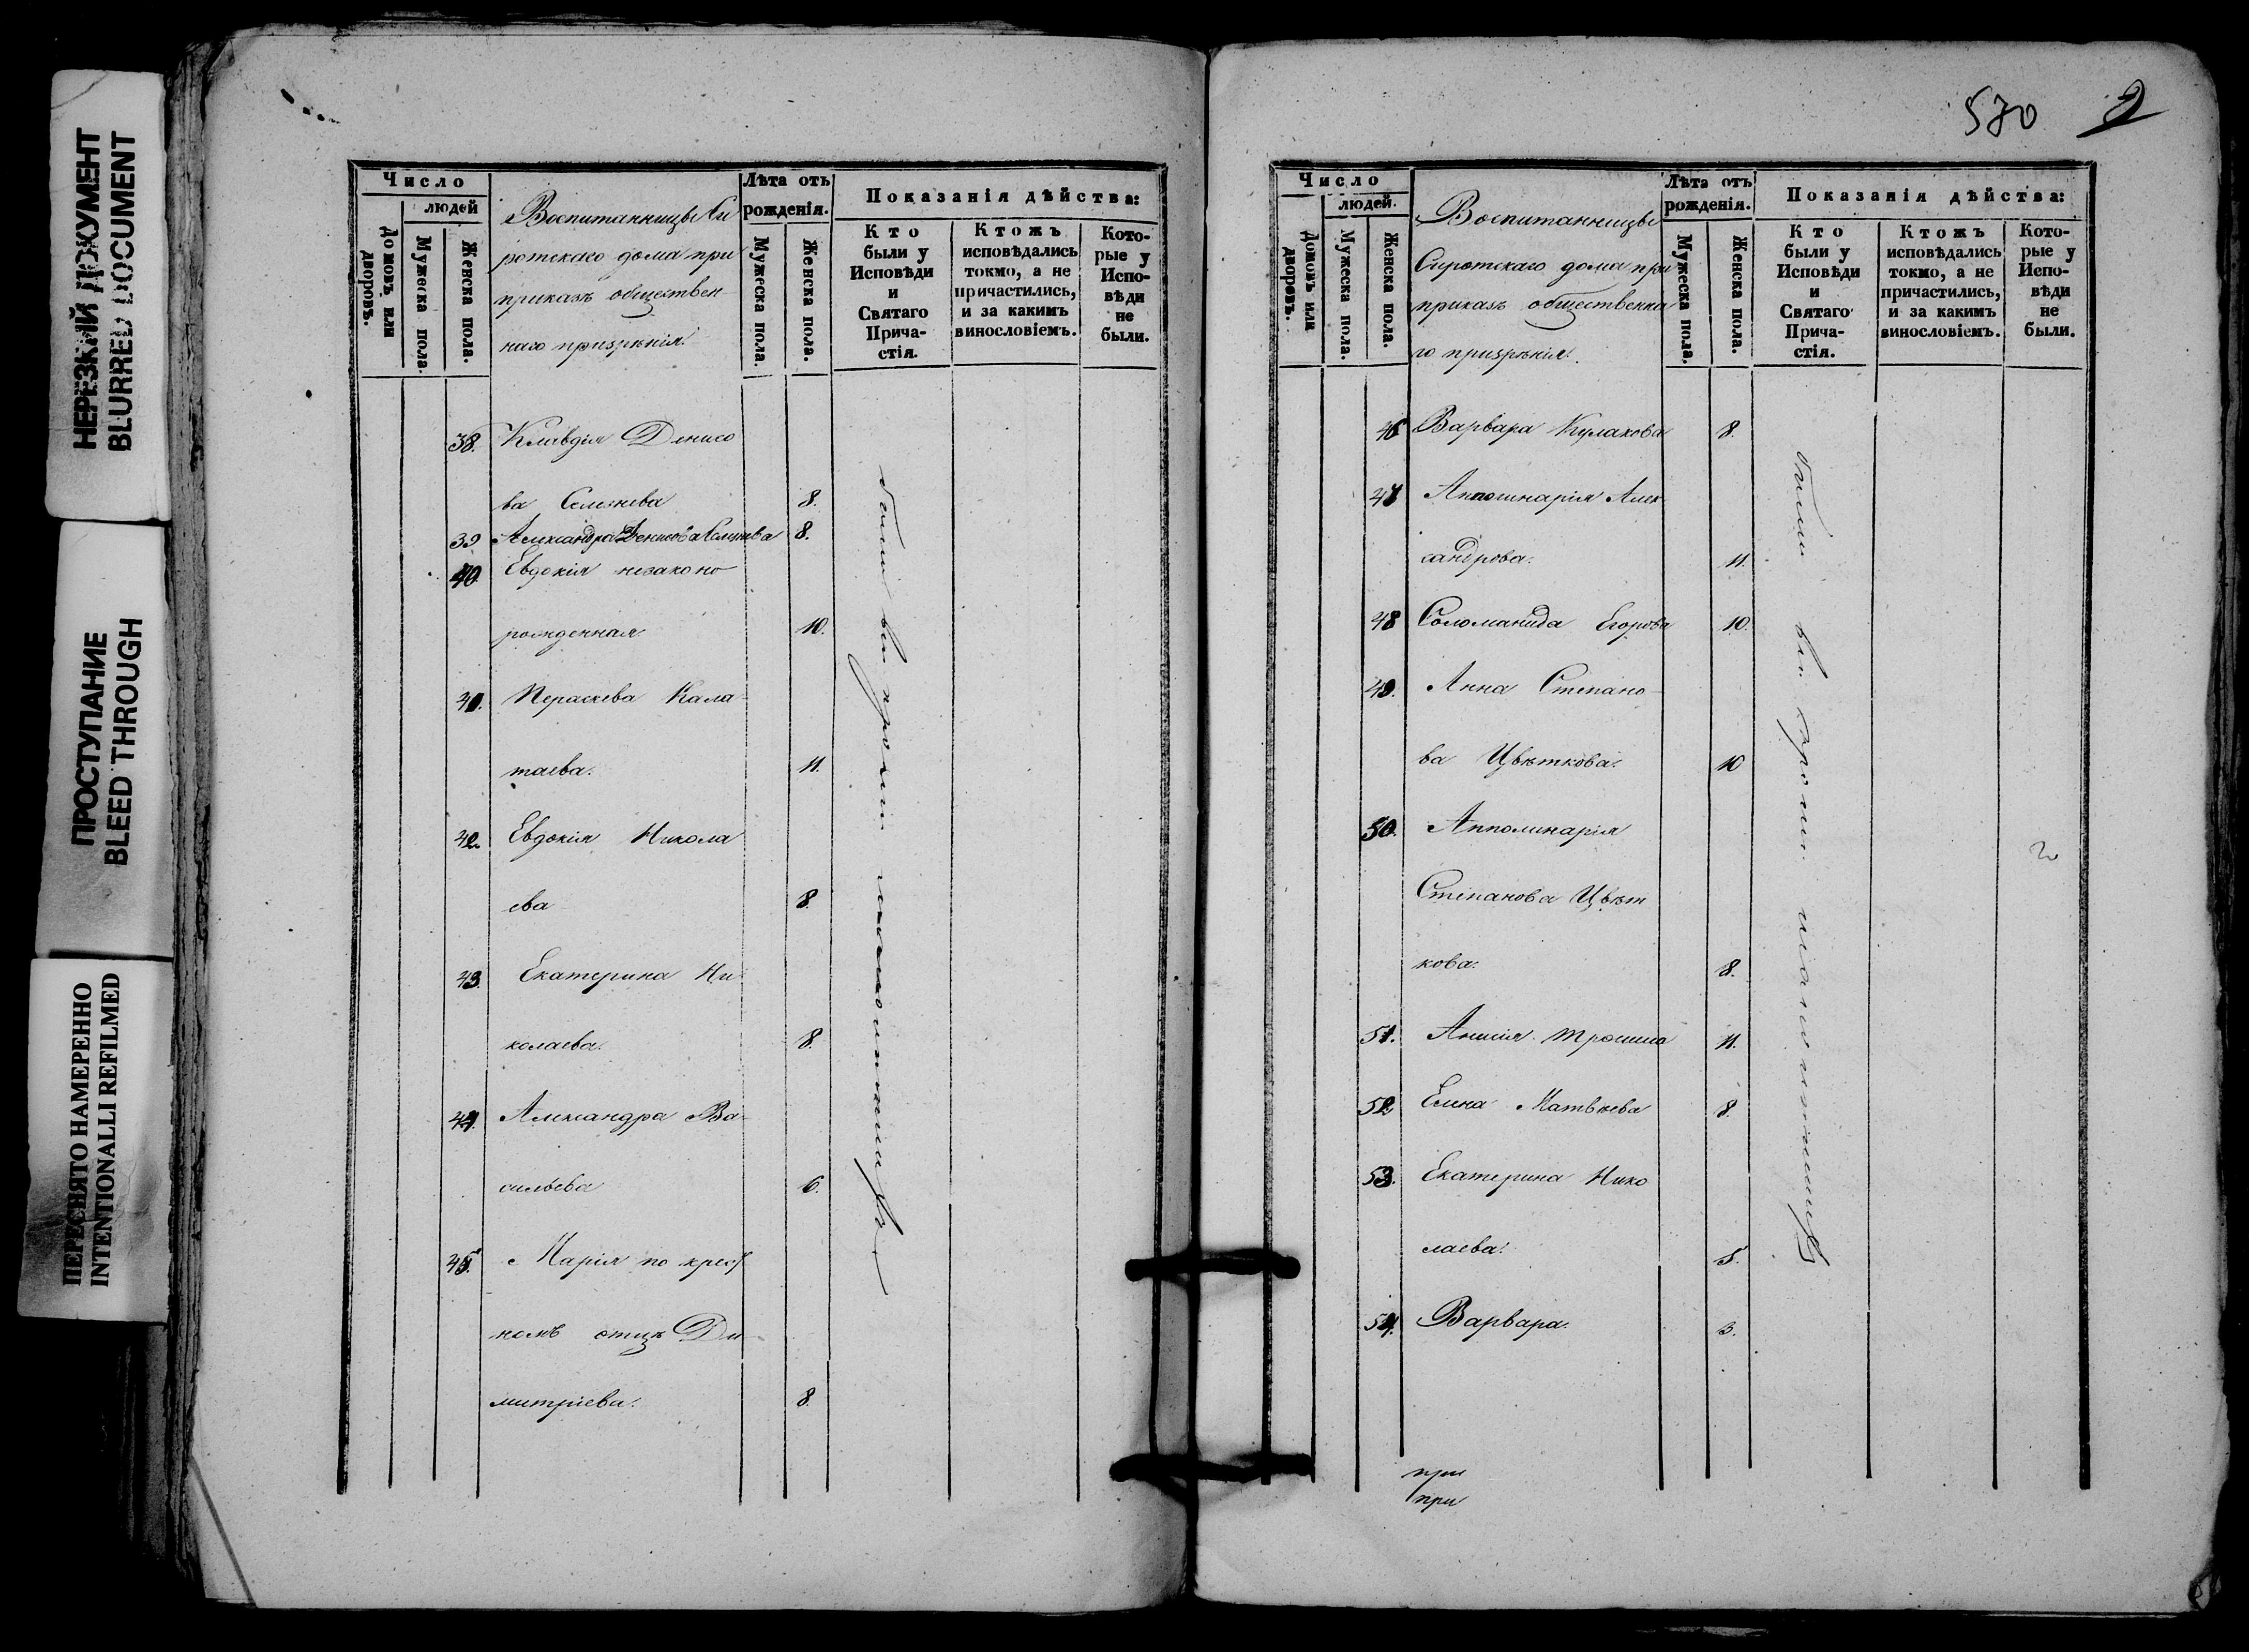 НЕРЕЗКИЙ ДОКУМЕНТ
BLURRED DOCUMENT
ПРОСТУПАНИЕ
BLEED THROUGH
ПЕРЕСНЯТО НАМЕРЕННО
INTENTIONALLI REFILMED
Число
людей
Домовъ или дворовъ.
Мужеска пола.
Женска пола.
Воспитанницы Си
ротскаго дома при
приказѣ обществен
наго призрѣнія
Лѣта отъ
рожденія.
Мужеска пола.
Женска пола.
Показанія дѣйства:
Кто
были у
Исповѣди
и
Святаго
Прича-
стія.
Ктожъ
исповѣдались
токмо, а не
причастились,
и за какимъ
винословіемъ.
Кото-
рые у
Испо-
вѣди
не
были.
38. Клавдія Денисо
ва Селезнева 8.
39 Александра Денисова Селезнева 8.
40 Евдокія незаконо
рожденная 10.
41. Параскева Кала
таева. 11.
42. Евдокія Никола
ева 8.
43. Екатерина Ни
колаева. 8.
44. Александра Ва-
сильева 6.
45. Марія по крест
номъ отцѣ Ди
митріева. 8.
были всѣ кромѣ
530 2
Число
людей.
Домовъ или дворовъ.
Мужеска пола.
Женска пола.
Воспитанницы
Сиротскаго дома при
приказѣ общественна
го призрѣнія.
Лѣта отъ
рожденія.
Мужеска пола.
Женска пола.
Показанія дѣйства:
Кто
были у
Исповѣди
и
Святаго
Прича-
стія.
Ктожъ
исповѣдались
токмо, а не
причастились,
и за какимъ
винословіемъ.
Кото-
рые у
Испо-
вѣди
не
были.
46 Варвара Кулакова 8.
47 Апполинарія Алек-
сандрова. 11.
48 Соломанида Егорова 10.
49. Анна Степано-
ва Цвѣткова. 10
50. Апполинарія
Степанова Цвѣт
кова. 8.
51. Анисія Трошина 11.
52 Елена Матвѣева 8.
53. Екатерина Нико
лаева. 5.
54. Варвара. 3.
были всѣ кромѣ
при
при